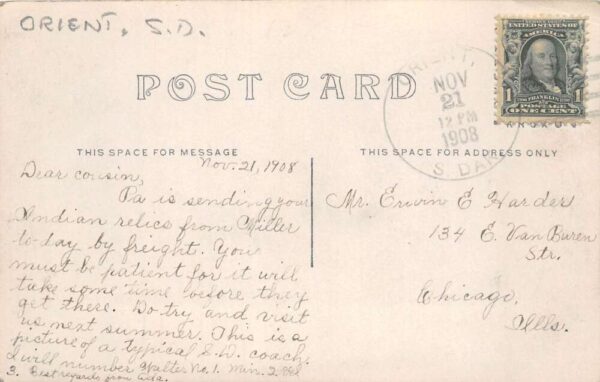 ORIENT, S.D.
POST CARD
UNITED STATES OF
AMERICA
1 FRANKLIN 1
POSTAGE
ONE CENT
ORIENT,
NOV
21
12 PM
1908
S. DAK.
THIS SPACE FOR MESSAGE
Nov. 21, 1908
Dear cousin,
Pa is sending your
Indian relics from Miller
to-day by freight. You
must be patient for it will
take some time before they
get there. Do try and visit
us next summer. This is a
picture of a typical S.D. coach.
I will number Walter No. 1. Min. 2.
3. Best regards from Ada.
THIS SPACE FOR ADDRESS ONLY
Mr. Erwin E Harder
134 E. Van Buren
Str.
Chicago,
Ills.